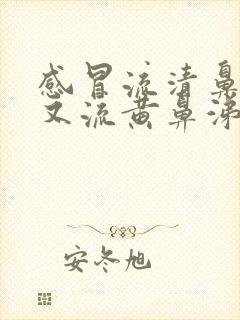 感冒流清鼻
又流黄鼻涕
安冬旭